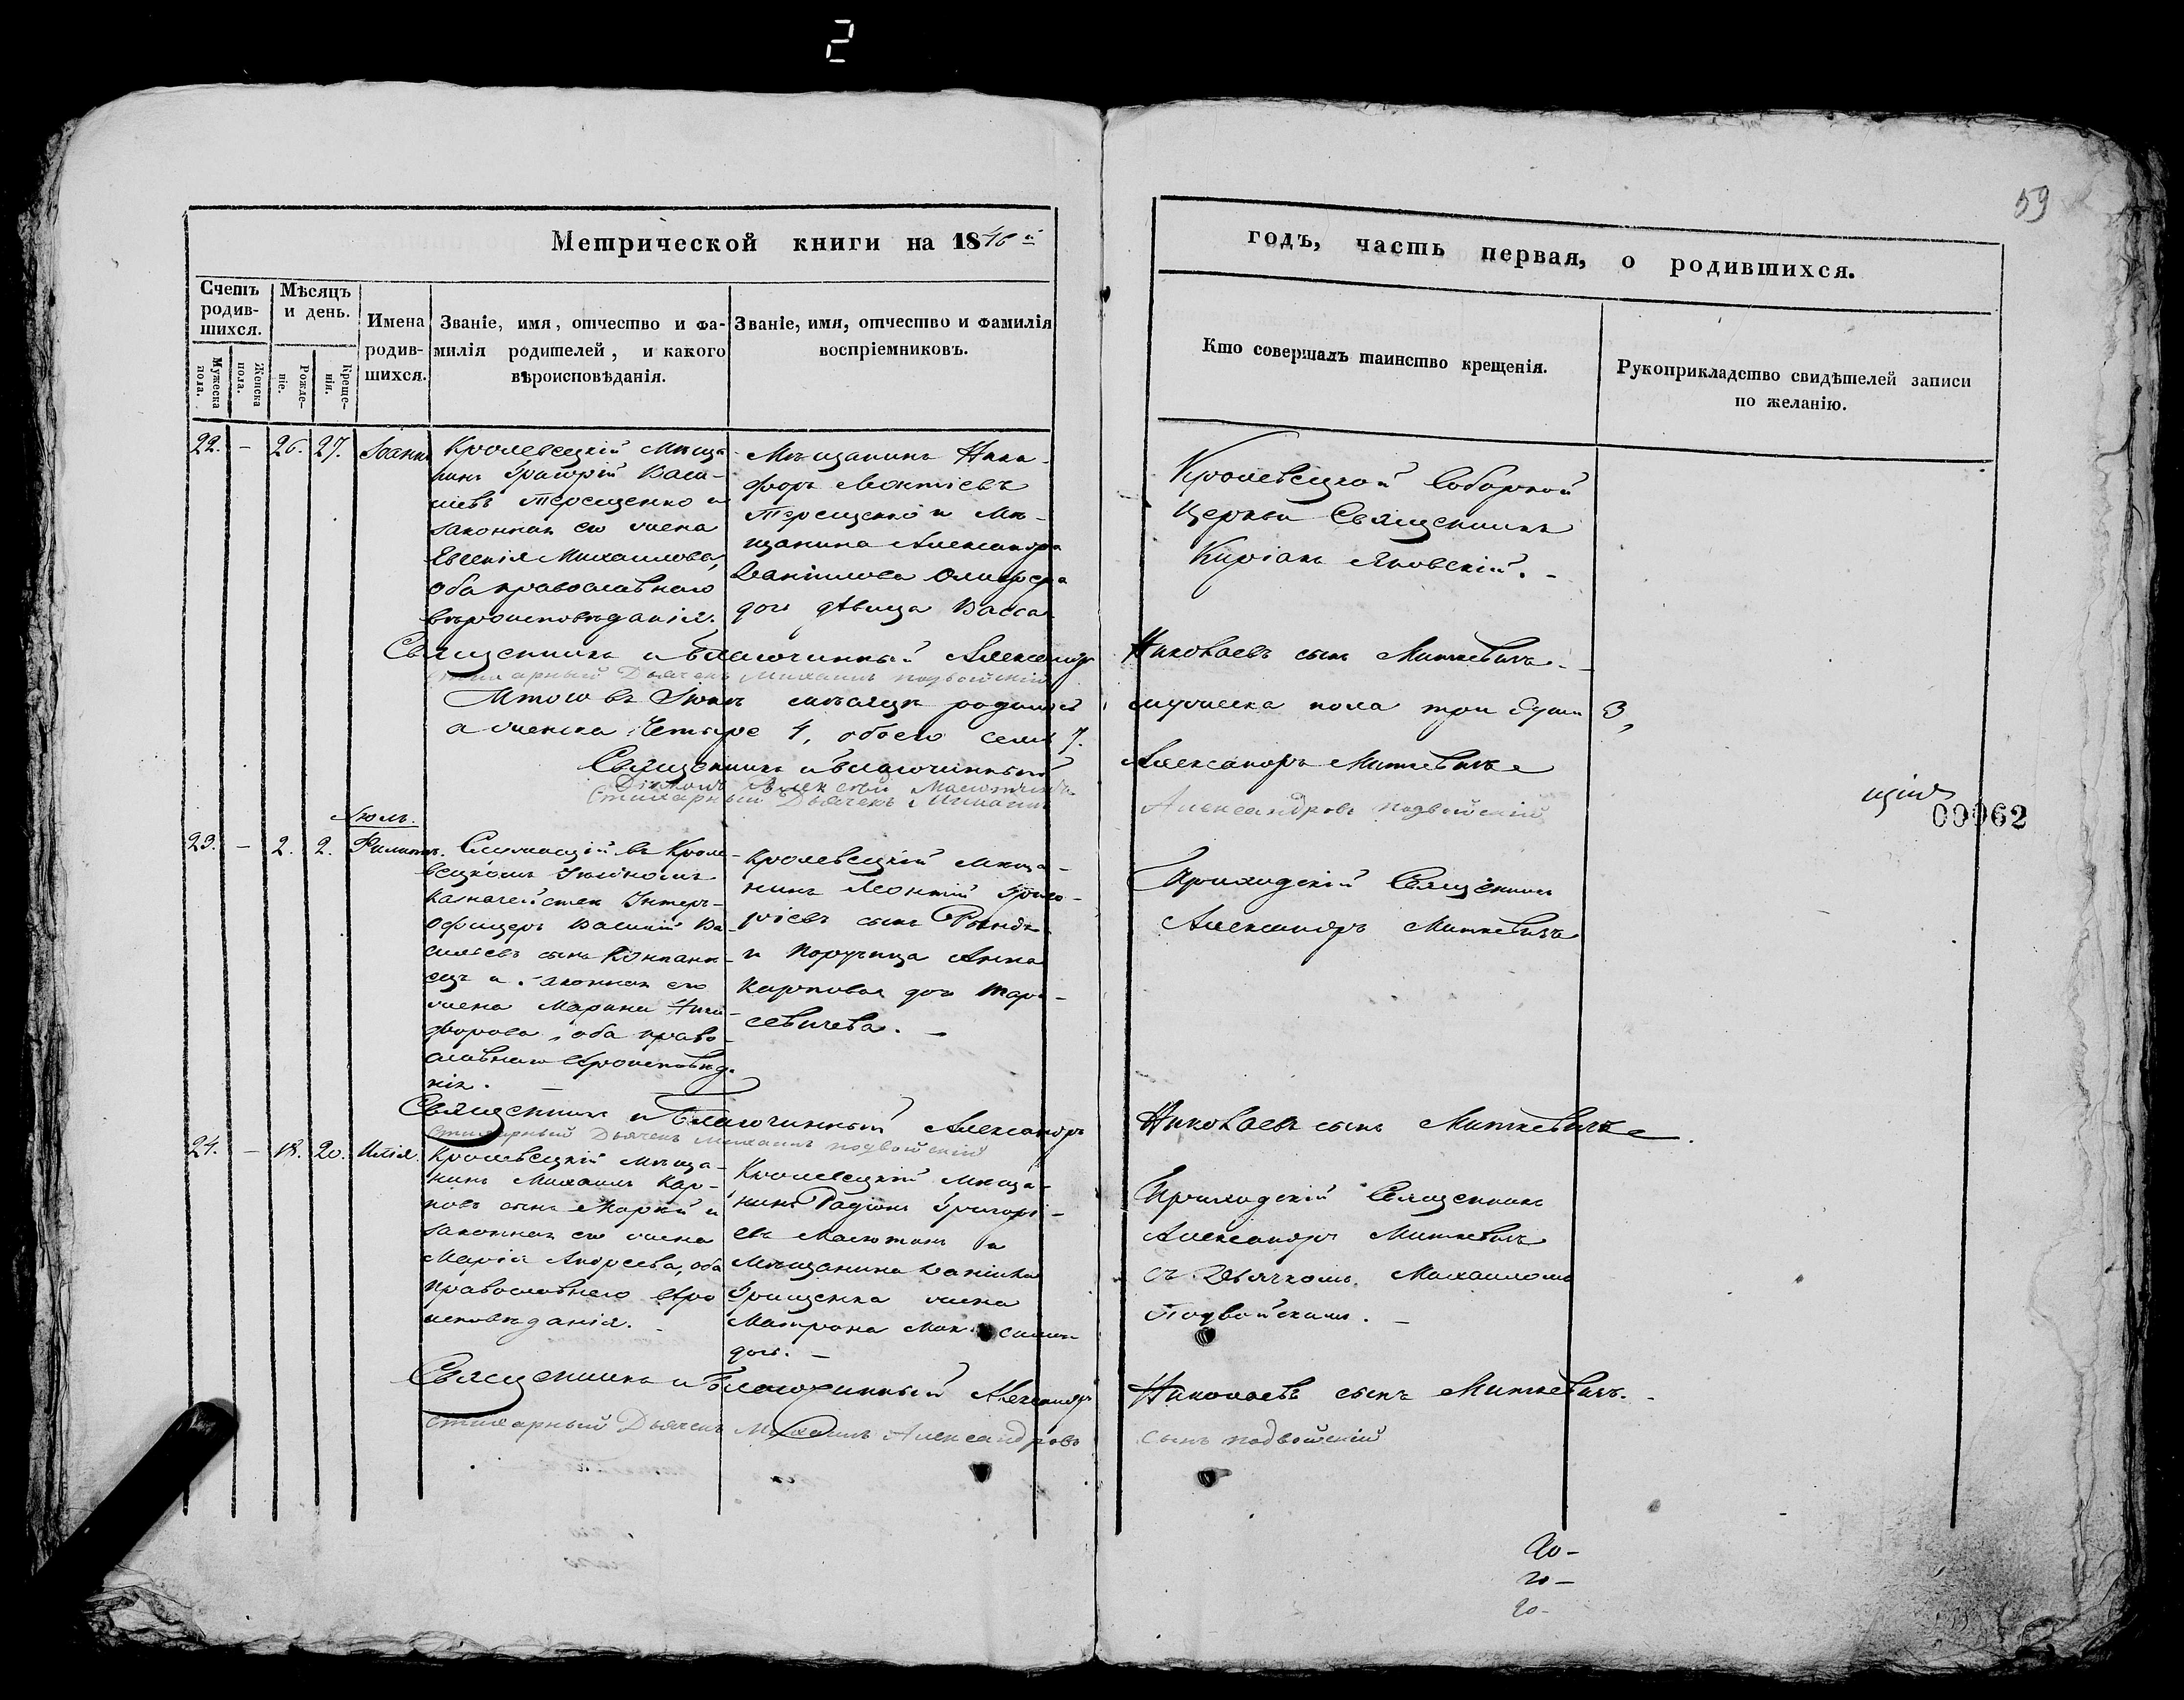 2
59
Метрической книги на 1846й
годъ, часть первая, о родившихся.
Счетъ родив-шихся.
Мужеска пола.
Женска пола.
Мѣсяцъ и день.
Рожде-ніе.
Креще-нія.
Имена родив-шихся.
Званіе, имя, отчество и фа-
милія родителей, и какого
вѣроисповѣданія.
Званіе, имя, отчество и фамилія
воспріемниковъ.
Кто совершалъ таинство крещенія.
Рукоприкладство свидѣтелей записи
по желанію.
22. – 26. 27. Іоаннъ
Кролевецкій Мѣща-
нинъ Григорій Васи-
льевъ Терещенко и
законная его жена
Евгенія Михайлова,
оба православнаго
вѣроисповѣданія.
Мѣщанинъ Ники-
форъ Леонтіевъ
Терещенко и Мѣ-
щанина Александра
Даніилова
дочь дѣвица Васса
Кролевецкой Соборной
Церкви Священникъ
Киріакъ Яновскій. –
Священникъ и Благочинный Александръ Николаевъ сынъ Миткевичъ. –
Стихарный Дьячекъ Михаилъ Подвойскій
Итого въ Іюнѣ мѣсяцѣ родилось мужеска пола три души 3,
а женска Четыре 4, обоего семь 7.
Священникъ и Благочинный Александръ Миткевичъ
Діаконъ Алексѣй
Стихарный Дьячекъ Михаилъ Александровъ Подвойскій
щій
00062
Іюль.
23. – 2. 2. Филиппъ.
Служащій въ Кроле-
вецкомъ Уѣздномъ
Казначействѣ Унтеръ-
Офицеръ Василій Ва-
сильевъ сынъ Компані-
ецъ и законная его
жена Марина Ники-
форова, оба право-
славнаго вѣроисповѣда-
нія. –
Кролевецкій Мѣща-
нинъ Леонтій Григо-
ріевъ сынъ
и Поручица Анна
Карповая дочь Тара-
севичева. –
Приходскій Священникъ
Александръ Миткевичъ
Священникъ и Благочинный Александръ Николаевъ сынъ Миткевичъ.
Стихарный Дьячекъ Михаилъ Подвойскій
24. – 18. 20. Илія.
Кролевецкій Мѣща-
нинъ Михаилъ Кар-
повъ сынъ и
законная его жена
Марія Андреева, оба
Православнаго вѣро
исповѣданія. –
Кролевецкій Мѣща-
нинъ Радіонъ Григорі-
евъ и
Мѣщанина Даніила
Грищенка жена
Матрона
дочь. –
Приходскій Священникъ
Александръ Миткевичъ
съ Дьячкомъ Михаиломъ
Подвойскимъ. –
Священникъ и Благочинный Александръ Николаевъ сынъ Миткевичъ. –
Стихарный Дьячекъ Михаилъ Александровъ сынъ Подвойскій
20 –
20 –
20 –